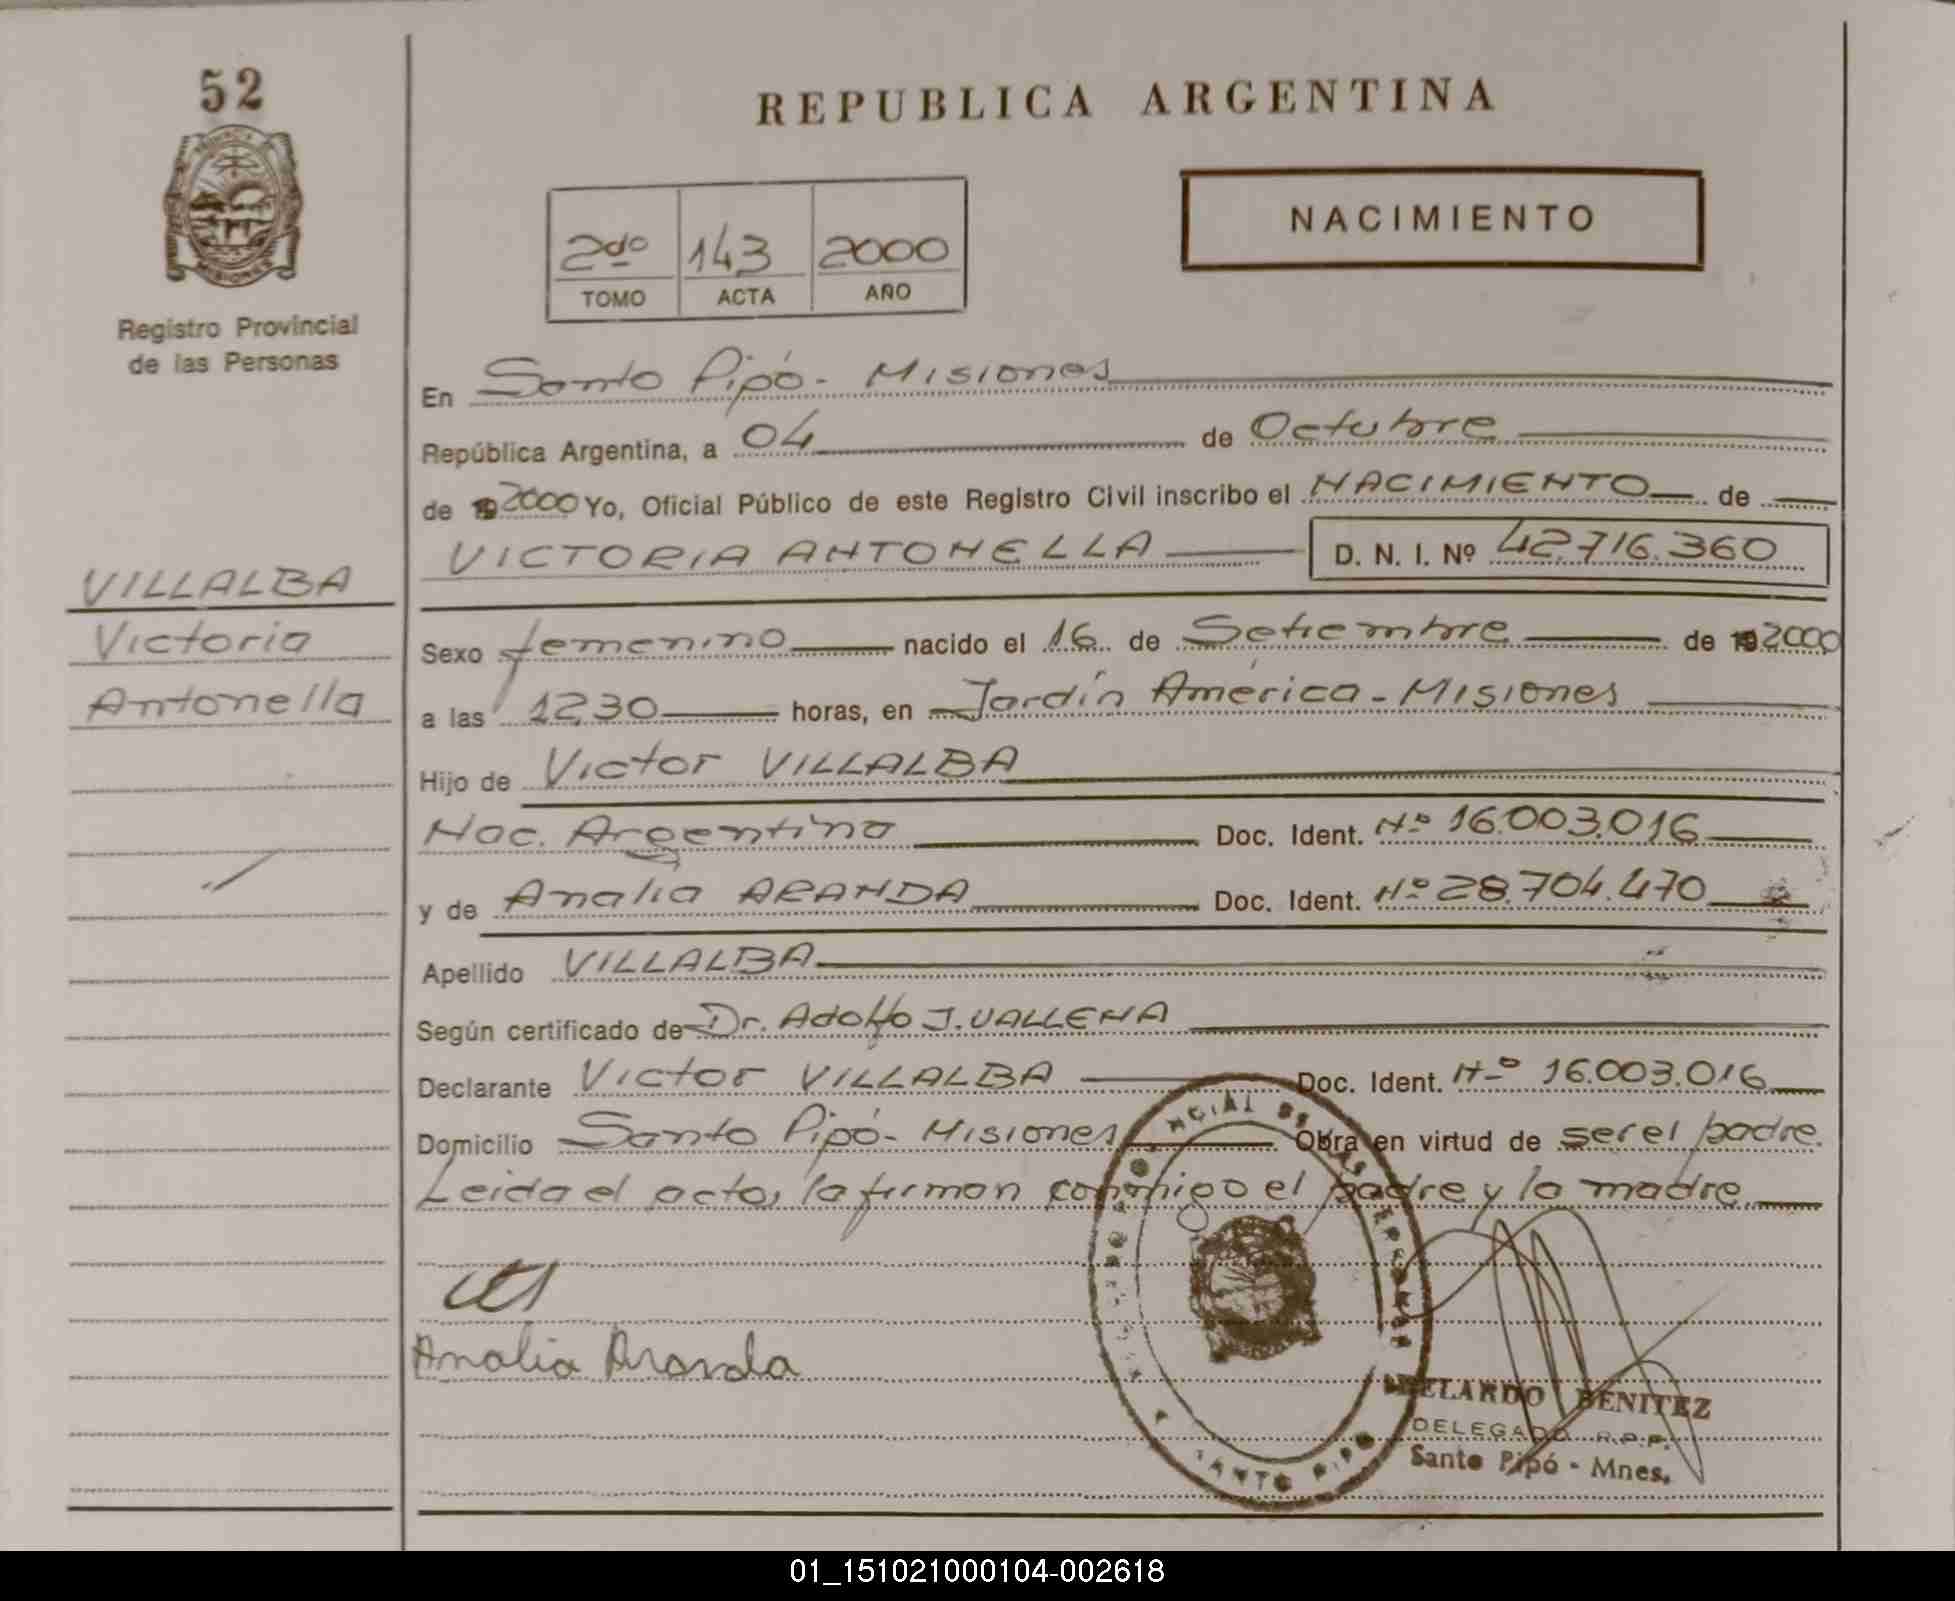 52
REPUBLICA ARGENTINA
NACIMIENTO
2do 143 2000
TOMO ACTA AÑO
Registro Provincial
de las Personas
MISIONES
En Santo Pipó - Misiones
República Argentina, a 04 de Octubre
de 19 2000 Yo, Oficial Público de este Registro Civil inscribo el NACIMIENTO de
VICTORIA ANTONELLA D. N. I. Nº 42.716.360
VILLALBA
Victoria
Antonella
Sexo femenino nacido el 16 de Setiembre de 19 2000
a las 12,30 horas, en Jardín América - Misiones
Hijo de Victor VILLALBA
Nac. Argentino Doc. Ident. Nº 16.003.016
y de Analia ARANDA Doc. Ident. Nº 28.704.470
Apellido VILLALBA
Según certificado de Dr. Adolfo J. VALLENA
Declarante Victor VILLALBA Doc. Ident. Nº 16.003.016
Domicilio Santo Pipó - Misiones Obra en virtud de ser el padre.
Leida el acta, la firman conmigo el padre y la madre.
Analia Aranda
SANTO PIPO
ABELARDO BENITEZ
DELEGADO R.P.P.
Santo Pipó - Mnes.
01_151021000104-002618